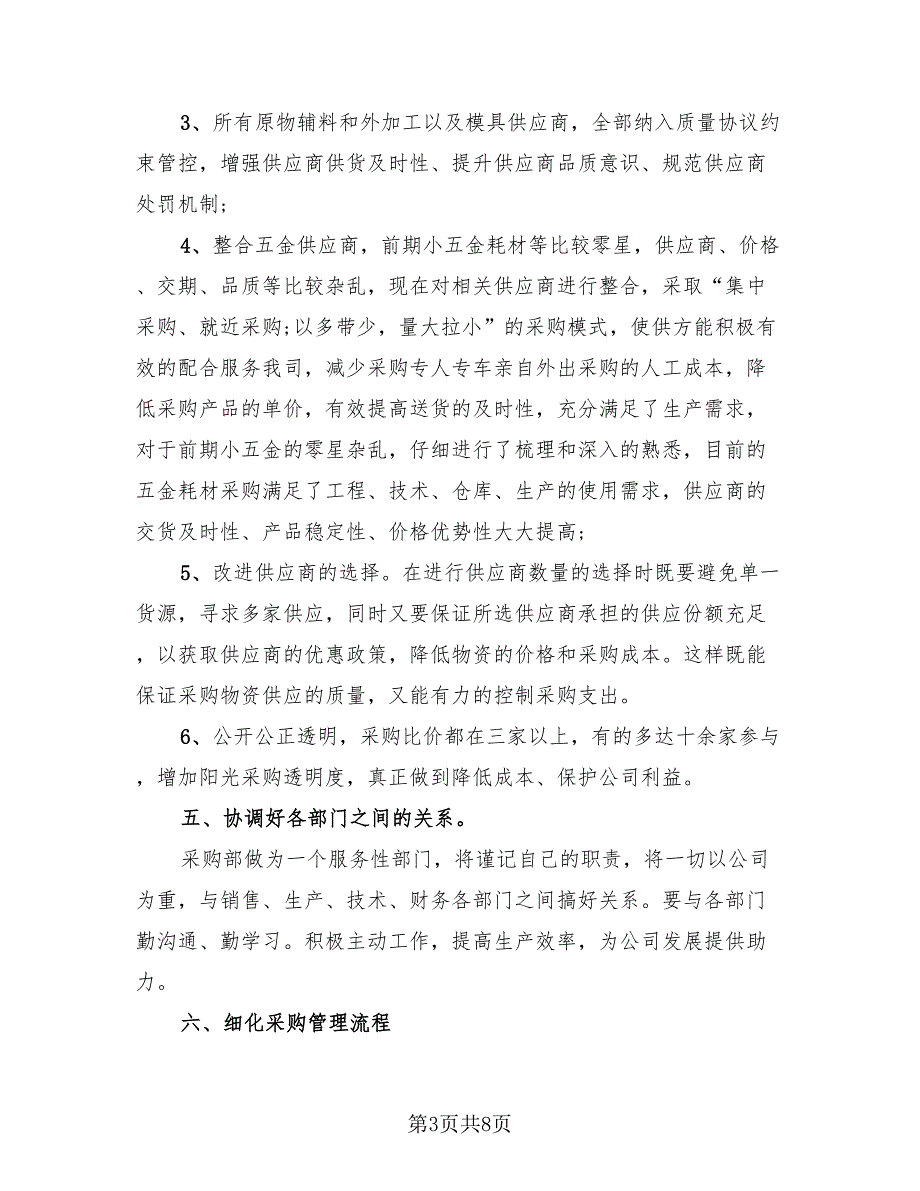 3、所有原物辅料和外加工以及模具供应商，全部纳入质量协议约
束管控，增强供应商供货及时性、提升供应商品质意识、规范供应商
处罚机制;
4、整合五金供应商，前期小五金耗材等比较零星，供应商、价格
、交期、品质等比较杂乱，现在对相关供应商进行整合，采取“集中
采购、就近采购;以多带少，量大拉小”的采购模式，使供方能积极有
效的配合服务我司，减少采购专人专车亲自外出采购的人工成本，降
低采购产品的单价，有效提高送货的及时性，充分满足了生产需求，
对于前期小五金的零星杂乱，仔细进行了梳理和深入的熟悉，目前的
五金耗材采购满足了工程、技术、仓库、生产的使用需求，供应商的
交货及时性、产品稳定性、价格优势性大大提高;
5、改进供应商的选择。在进行供应商数量的选择时既要避免单一
货源，寻求多家供应，同时又要保证所选供应商承担的供应份额充足
，以获取供应商的优惠政策，降低物资的价格和采购成本。这样既能
保证采购物资供应的质量，又能有力的控制采购支出。
6、公开公正透明，采购比价都在三家以上，有的多达十余家参与
，增加阳光采购透明度，真正做到降低成本、保护公司利益。
五、协调好各部门之间的关系。
采购部做为一个服务性部门，将谨记自己的职责，将一切以公司
为重，与销售、生产、技术、财务各部门之间搞好关系。要与各部门
勤沟通、勤学习。积极主动工作，提高生产效率，为公司发展提供助
力。
六、细化采购管理流程
第3页共8页